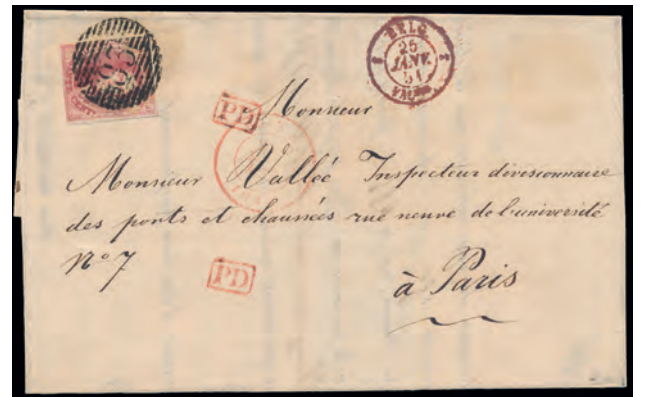 83
BELG.
25
JANV.
51
PD
Monsieur
Monsieur Vallée Inspecteur divisionnaire
des ponts et chaussées rue neuve de l'université
N° 7
PD
à Paris